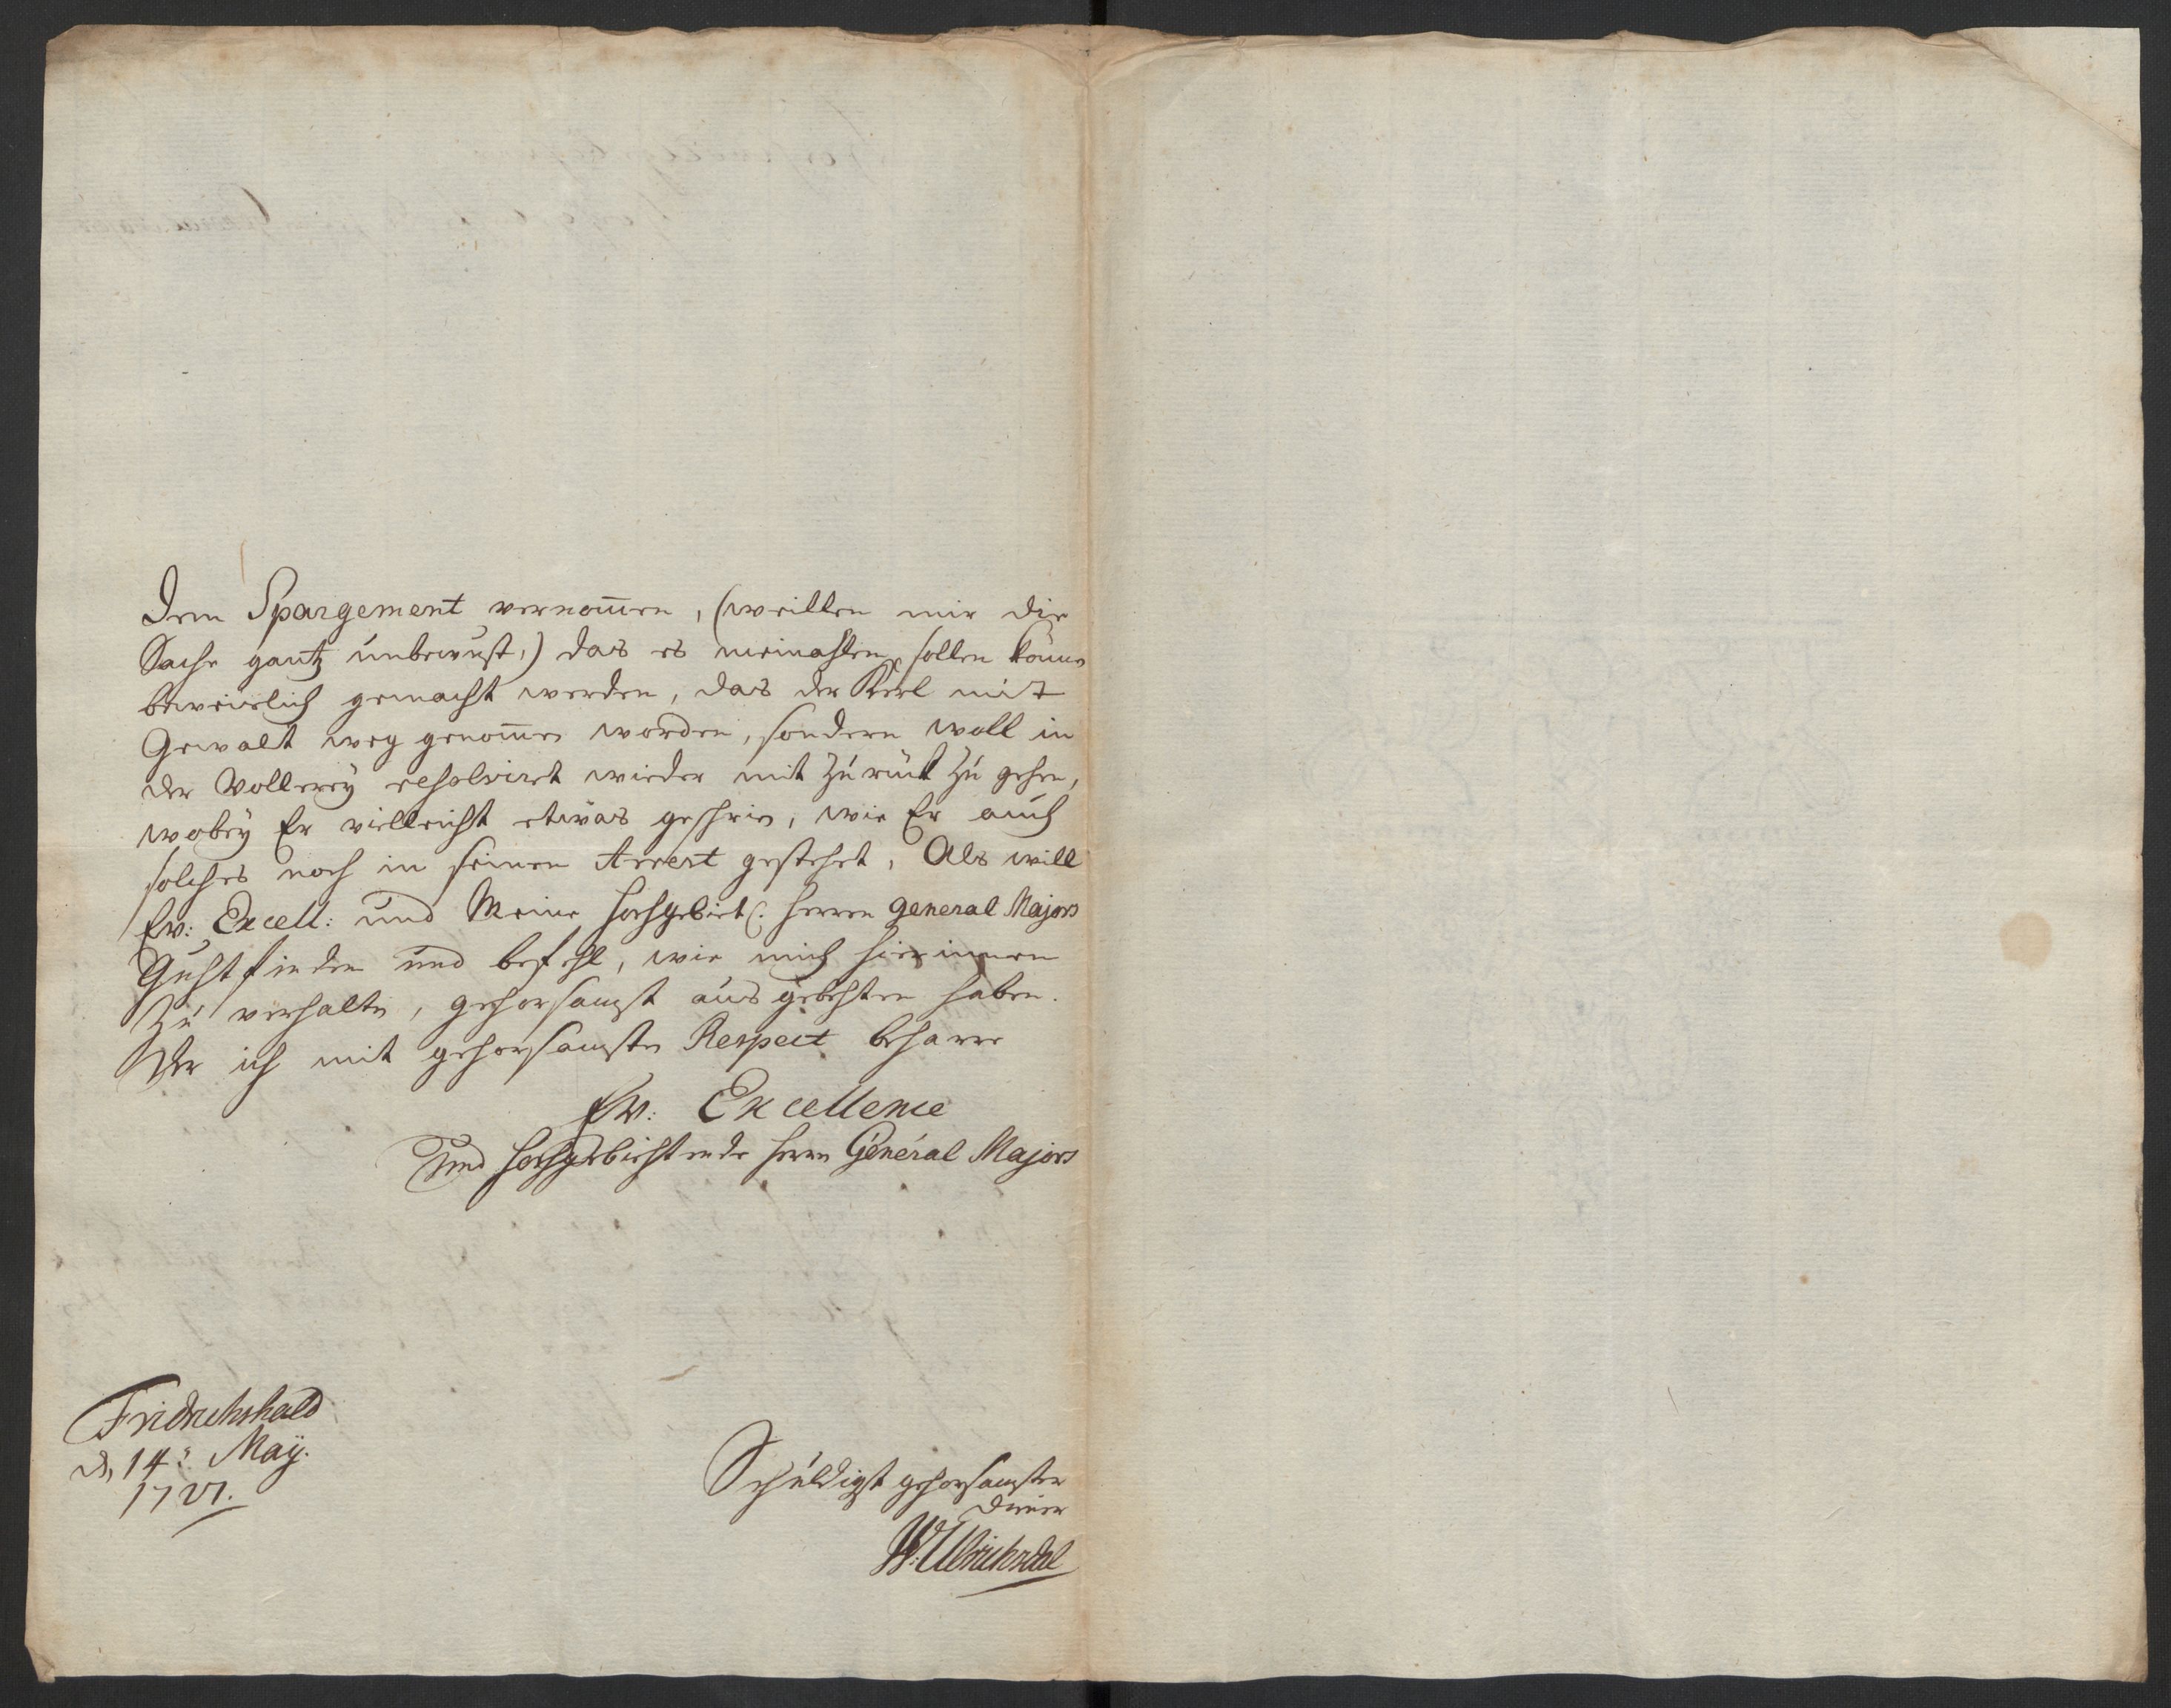 Dem Spargement vernom̄en, (weillen mir die
Sache gantz unbewust,) das es niemahlen sollen könne
beweislich gemacht werden, das der Kerl mit
Gewalt weg genom̄en worden, sondern woll in
der Vollerey resolviret wieder mit zurück zu gehen,
wobey Er vielleicht etwas geschrien, wie Er auch
solches noch in seinen Arrest gestehet, Als will
Ew: Excell: und Meine hochgebiet: Herren General Majors
Guhtfinden und befehl, wie mich hierinnen
Zu verhalten, gehorsamst aus gebehten haben.
Der ich mit gehorsamsten Respect beharre
Ew: Excellence
Und Hochgebiehtende Herrn Général Majors
Fridrichshald
d, 14: May.
1721.
Schuldigst gehorsamster
Diener
W: Ulrichsdal